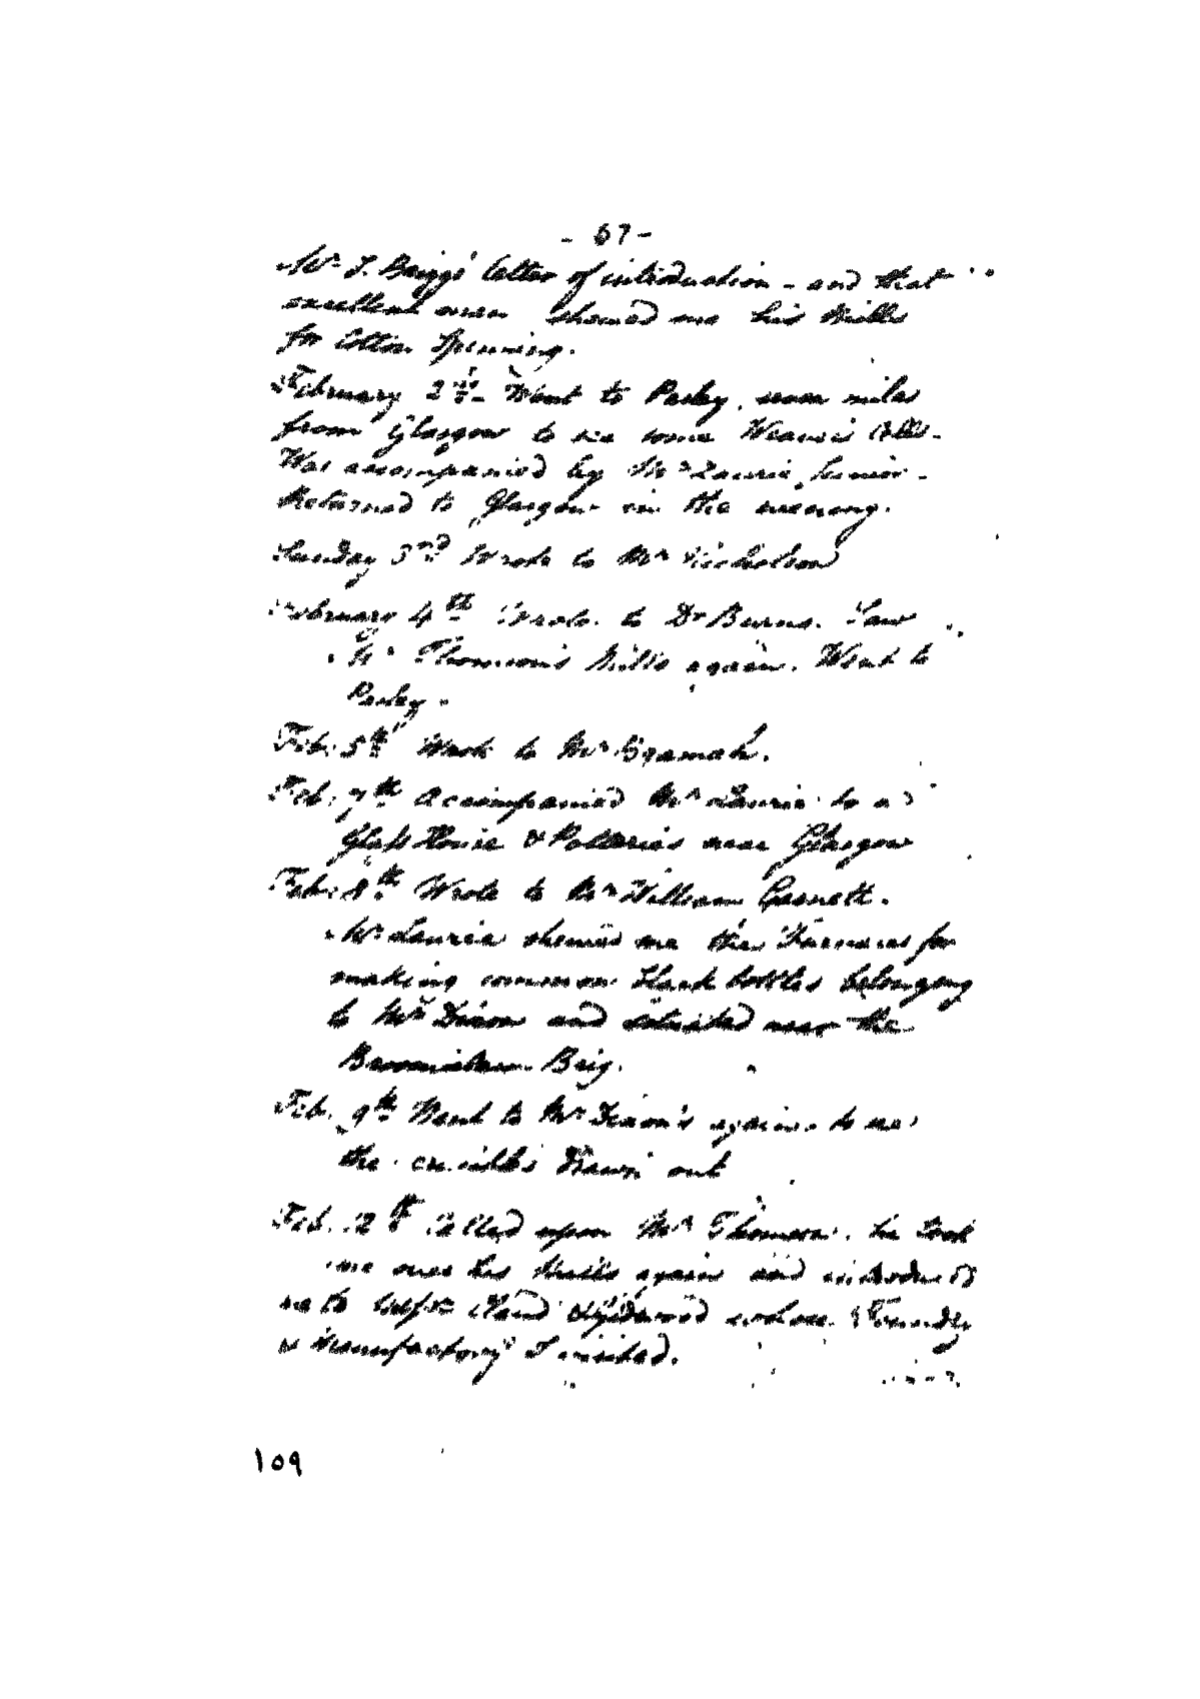 - 67 -
Mr J. Briggs' letter of introduction - and that
excellent man showed me his Mills
for Cotton Spinning.
February 2nd Went to Pasley, seven miles
from Glasgow to see some Weavers
Was accompanied by Mr Laurie, Junior -
Returned to Glasgow in the evening.
Sunday 3rd Wrote to Mr Nicholson
February 4th Wrote to Dr Burns. Saw
Mr Thomson's Mills again. Went to
Pasley.
Feb: 5th Wrote to Mr Bramah.
Feb: 7th Accompanied Mr Laurie to a
Glass House & Potteries near Glasgow
Feb: 8th Wrote to Mr William Garnett.
Mr Laurie shewed me the Furnaces for
making common black bottles belonging
to Mr Dixon and situated near the
Broomielaw Brig.
Feb. 9th Went to Mr Dixon's again to see
the crucibles drawn out
Feb. 12th Called upon Mr Thomson. he took
me over his Mills again and introduced
me to whose Foundry
& Manufactory I visited.
109